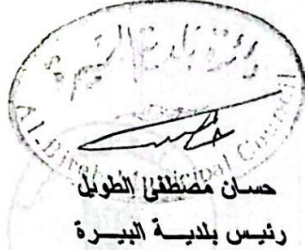 Municipal Council
حسان مصطفى الطويل
رئيس بلدية البيرة